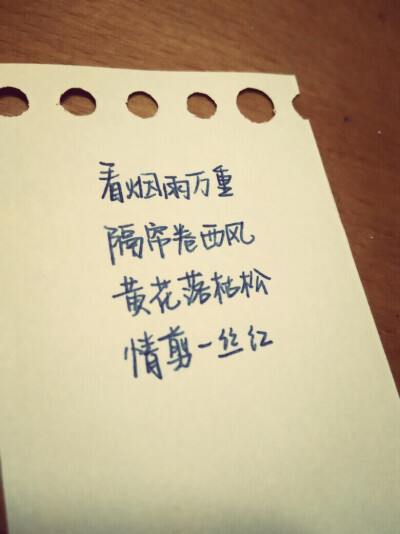 看烟雨万重
隔帘卷西风
黄花落枯松
情剪一丝红